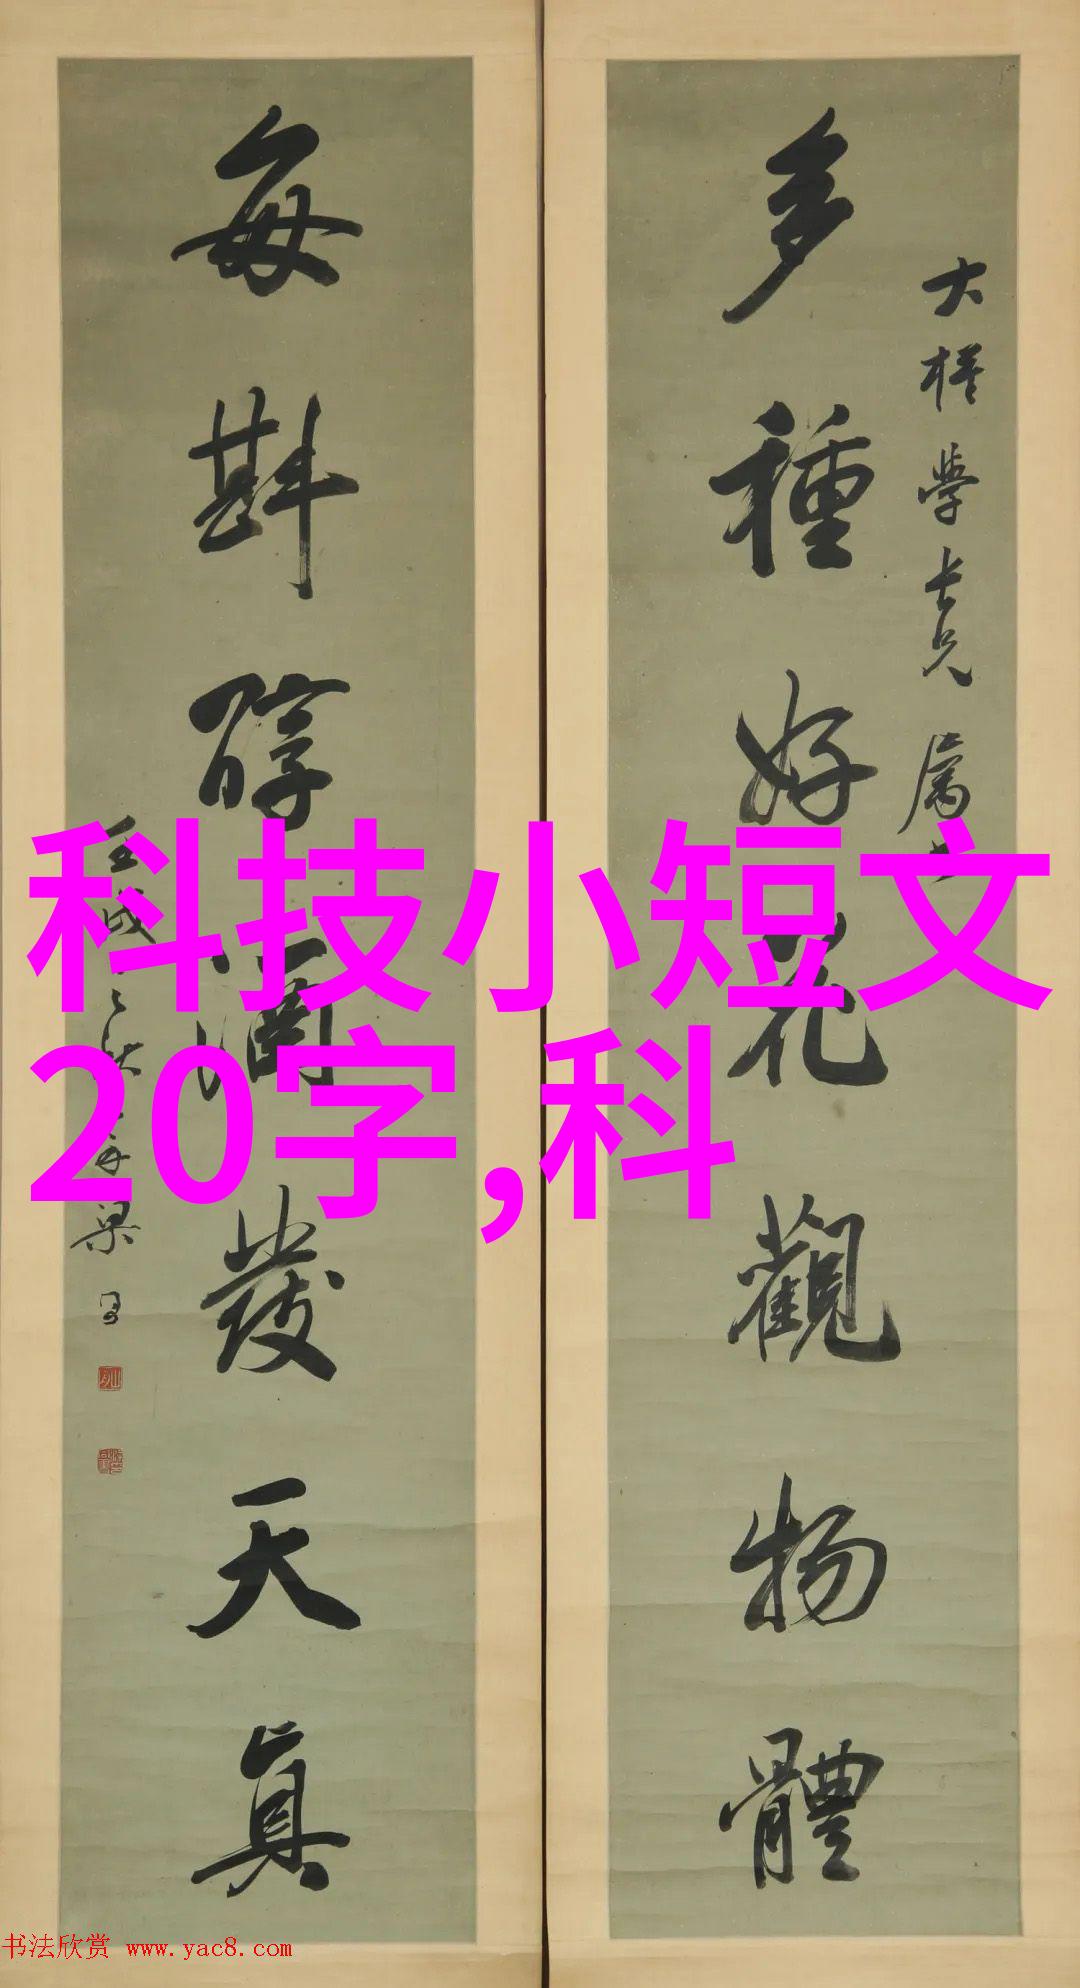 大
學長兄
屬
多種好花觀物體
每斟醇酒發天真
壬戌之秋
梁
科技小短文
20字,科
书法欣赏 www.yac8.com